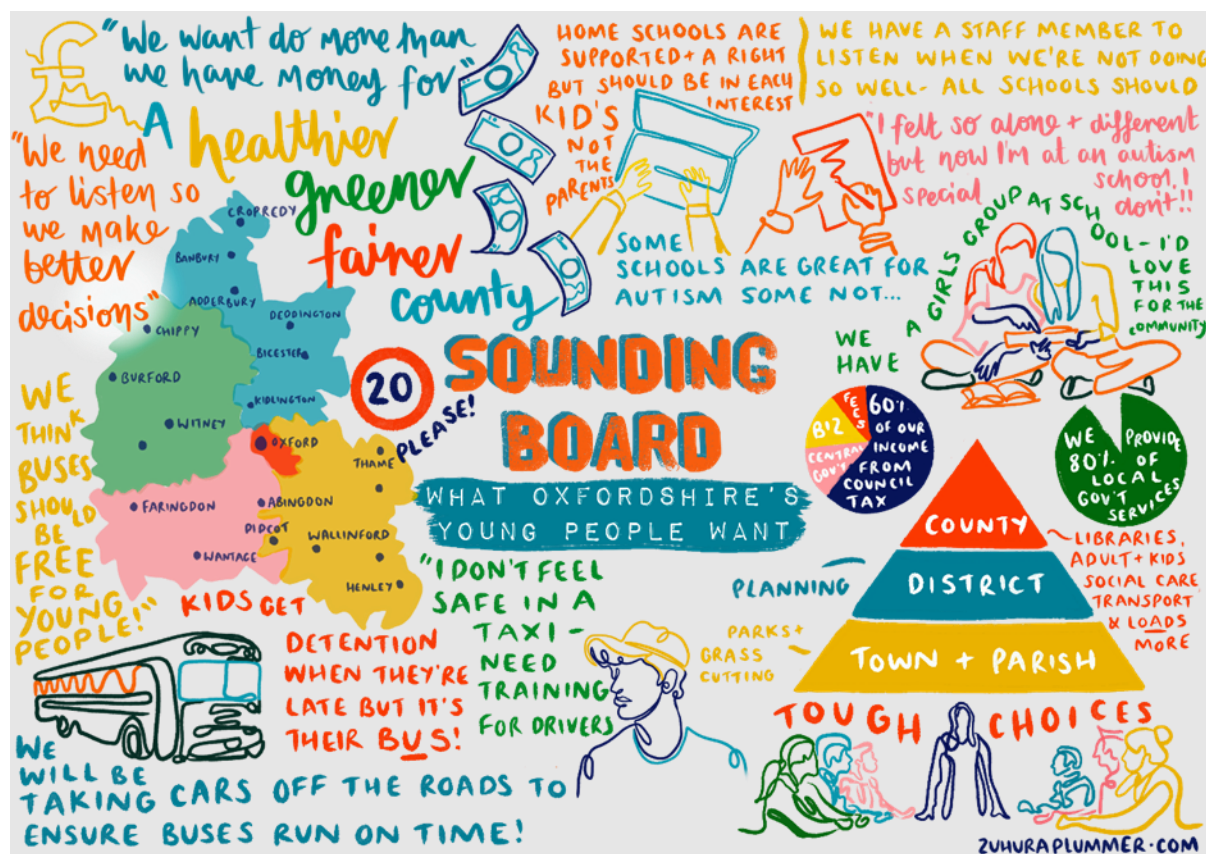 "We want do more than
we have money for"
A healthier
greener
fairer
county
"We need
to listen so
we make
better
decisions"
HOME SCHOOLS ARE
SUPPORTED + A RIGHT
BUT SHOULD BE IN EACH
INTEREST
KID'S
NOT
THE
PARENTS
WE HAVE A STAFF MEMBER TO
LISTEN WHEN WE'RE NOT DOING
SO WELL - ALL SCHOOLS SHOULD
"I felt so alone + different
but now I'm at an autism
special school, I
don't!!
SOME
SCHOOLS ARE GREAT FOR
AUTISM SOME NOT...
WE
HAVE
A GIRLS GROUP AT SCHOOL - I'D
LOVE
THIS
FOR THE
COMMUNITY
CROPREDY
BANBURY
ADDERBURY
DEDDINGTON
CHIPPY
BICESTER
BURFORD
KIDLINGTON
WITNEY
OXFORD
THAME
FARINGDON
ABINGDON
DIDCOT
WALLINFORD
WANTAGE
HENLEY
20
PLEASE!
SOUNDING
BOARD
WHAT OXFORDSHIRE'S
YOUNG PEOPLE WANT
FEES
BIZ
CENTRAL
GOV'T
60%
OF OUR
INCOME
FROM
COUNCIL
TAX
WE PROVIDE
80% OF
LOCAL
GOV'T
SERVICES
COUNTY
LIBRARIES,
ADULT + KIDS
SOCIAL CARE
TRANSPORT
& LOADS
MORE
PLANNING
DISTRICT
PARKS +
GRASS
CUTTING
TOWN + PARISH
WE
THINK
BUSES
SHOULD
BE
FREE
FOR
YOUNG
PEOPLE!"
KIDS GET
DETENTION
WHEN THEY'RE
LATE BUT IT'S
THEIR BUS!
"I DON'T FEEL
SAFE IN A
TAXI -
NEED
TRAINING
FOR DRIVERS
WE
WILL BE
TAKING CARS OFF THE ROADS TO
ENSURE BUSES RUN ON TIME!
TOUGH CHOICES
ZUHURAPLUMMER.COM